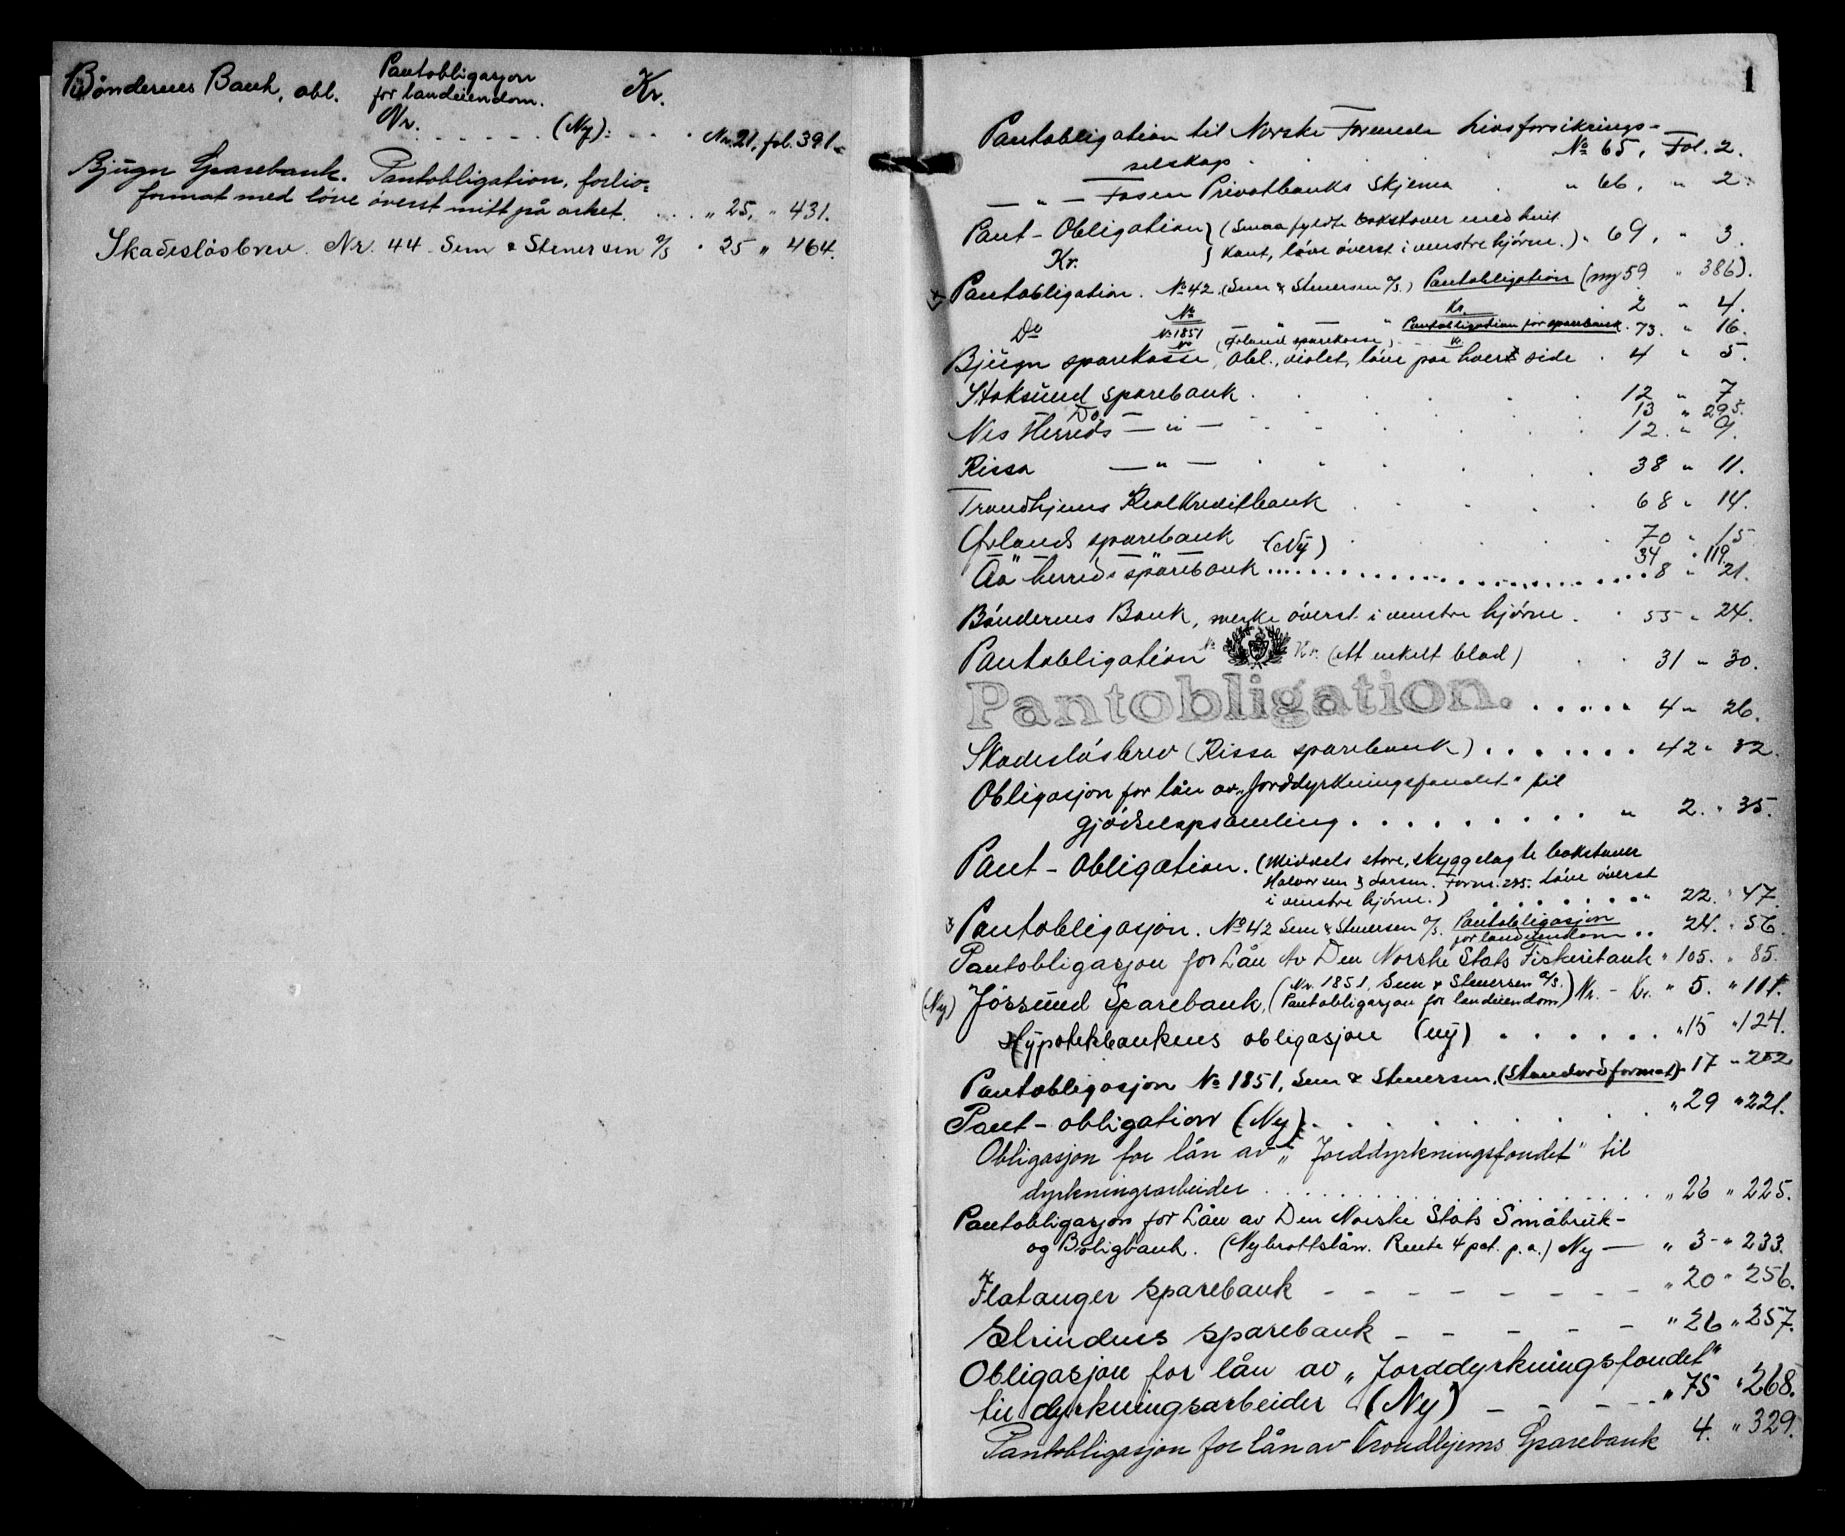 Bøndernes Bank, obl. Pantobligasjon for landeiendom. Kr.
Nr. - - - - - (Ny): - - - Nr. 21, fol. 391.
Bjugn Sparebank. Pantobligation, folio-
format med løve øverst mitt på arket. . . . " 25, " 431.
Skadesløsbrev. Nr. 44 Sem & Stenersen A/S " 25 " 464.
1
Pantobligation til Norske Forenede Livsforsikrings-
selskap . . . . No 65, Fol. 2.
— " — Fosen Privatbanks Skjema . " 66, " 2.
Pant-Obligation } (Smaa fyldte bokstaver med hvit
Kr. } kant, løve øverst i venstre hjørne.) " 69, " 3.
Pantobligation. No 42 (Sem & Stenersen A/S.) Pantobligation (ny 59 " 386).
No Kr. 2 " 4.
Do No 1851 " Pantobligation for sparebank. 73. " 16.
No (Ørland sparekasse) Kr.
Bjugn sparekasse, Obl., violet, løve paa hver side . 4 " 5.
Stoksund sparebank . . . . . . 12 " 7
Do 13 " 295.
Nes Herreds — " — . . . . . 12. " 9.
Rissa — " — . . . . . 38 " 11.
Trondhjems Realkreditbank . . . . 68 " 14.
Ørlands sparebank (Ny) . . . . 70 " 15
34 " 119
Aa herreds sparebank . . . . . . . . . 8 " 21.
Bøndernes Bank, merke øverst i venstre hjørne . . 55 " 24.
Pantobligation No Kr. (ett enkelt blad) . . 31 " 30.
Pantobligation. . . . . . 4 " 26.
Skadesløsbrev (Rissa sparebank) . . . . . . . 42 " 32.
Obligasjon for lån av „Jorddyrkningsfondet" til
gjødselopsamling . . . . . . . . . " 2. " 35.
Pant-Obligation. (Middels store, skyggelagte bokstaver
Halvorsen & Larsen. Form. 285. Løve øverst
i venstre hjørne.) . . . . . . . " 22. " 47.
Pantobligasjon. No 42 Sem & Stenersen A/S. Pantobligasjon
for landeiendom . . 24. " 56.
Pantobligasjon for Lån Av Den Norske Stats Fiskeribank " 105. " 85.
(Ny) Jøssund Sparebank, (Nr. 1851, Sem & Stenersen A/S. Pantobligasjon for landeiendom) Nr. - Kr. " 5. " 111.
Hypotekbankens obligasjon (ny) . . . . . . " 15 " 124.
Pantobligasjon No 1851, Sem & Stenersen, (Standardformat) - 17 " 202
Pant-obligation (Ny) . . . . . . . " 29 " 221.
Obligasjon for lån av „Jorddyrkningsfondet" til
dyrkningsarbeider . . . . . . . . . . " 26 " 225.
Pantobligasjon for Lån av Den Norske Stats Småbruk-
og Boligbank. (Nybrottslån. Rente 4 pct. p.a.) Ny — " 3 - " 233.
Flatanger sparebank - - - - - - - - " 20 " 256.
Strindens sparebank - - - - - " 26 " 257.
Obligasjon for lån av „Jorddyrkningsfondet"
til dyrkningsarbeider (Ny) - - - - " 75 " 268.
Pantobligasjon for lån av Trondhjems Sparebank 4. " 329.